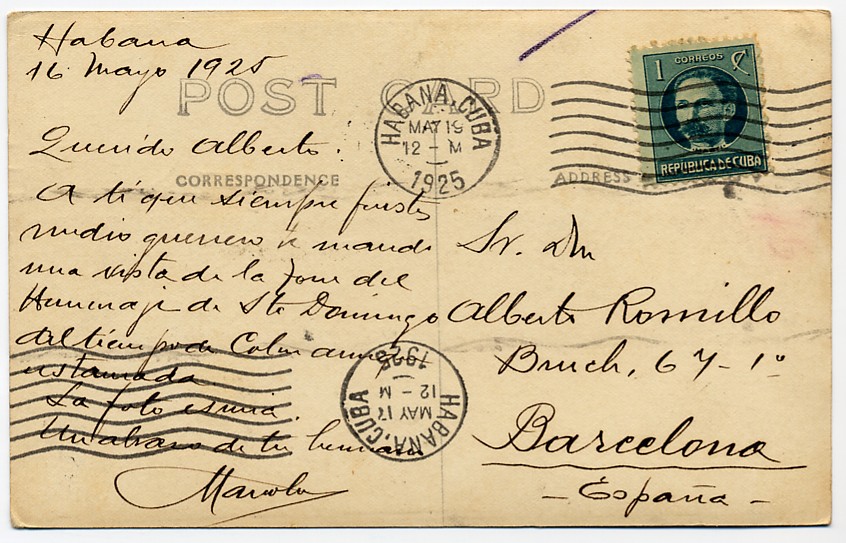 Habana
16 Mayo 1925
POST CARD
HABANA, CUBA
MAY 19
12 - M
1925
1 CORREOS C
REPUBLICA DE CUBA
CORRESPONDENCE
ADDRESS
Querido Alberto:
A ti que siempre fuistes
medio guerrero te mando
una vista de la Torre del
Homenaje de Sto Domingo
del tiempo de Colon
La foto es mia.
Un abrazo de tu hermano
Sr. Dn
Alberto Romillo
Bruch, 67-1º
Barcelona
- España -
HABANA, CUBA
MAY 17
12 - M
1925